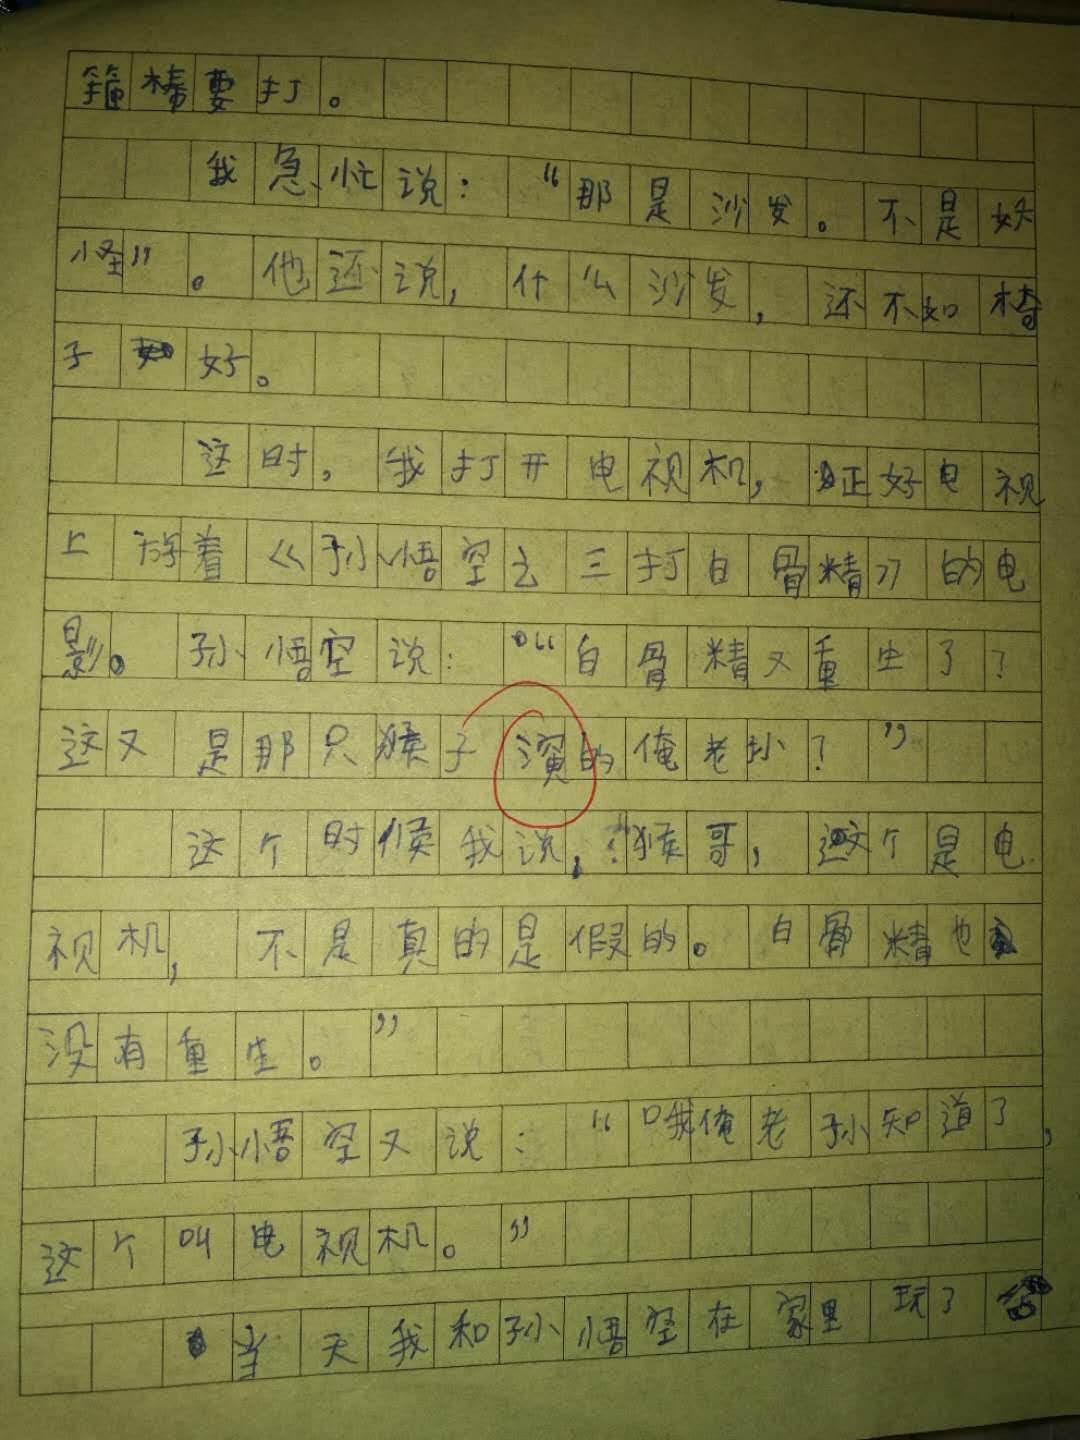 箍棒要打。
我急忙说：“那是沙发。不是妖
怪”。他还说，什么沙发，还不如椅
子好。
这时，我打开电视机，正好电视
上放着《孙悟空之三打白骨精》的电
影。孙悟空说：“白骨精又重生了？
这又是那只猴子演的俺老孙？”
这个时候我说，“猴哥，这个是电
视机，不是真的是假的。白骨精也
没有重生。”
孙悟空又说：“哦俺老孙知道了，
这个叫电视机。”
当天我和孙悟空在家里玩了